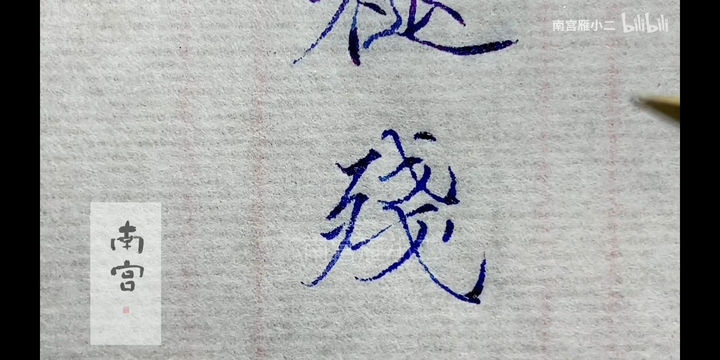 南宫雁小二 bilibili
殘
南宫